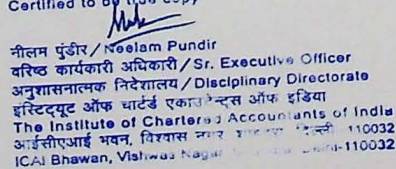 Certified to be true copy
नीलम पुंडीर/Neelam Pundir
वरिष्ठ कार्यकारी अधिकारी/Sr. Executive Officer
अनुशासनात्मक निदेशालय/Disciplinary Directorate
इंस्टिट्यूट ऑफ चार्टर्ड एकाउन्टेन्ट्स ऑफ इंडिया
The Institute of Chartered Accountants of India
आईसीएआई भवन, विश्वास नगर दिल्ली 110032
ICAI Bhawan, Vishwas Nagar Delhi-110032